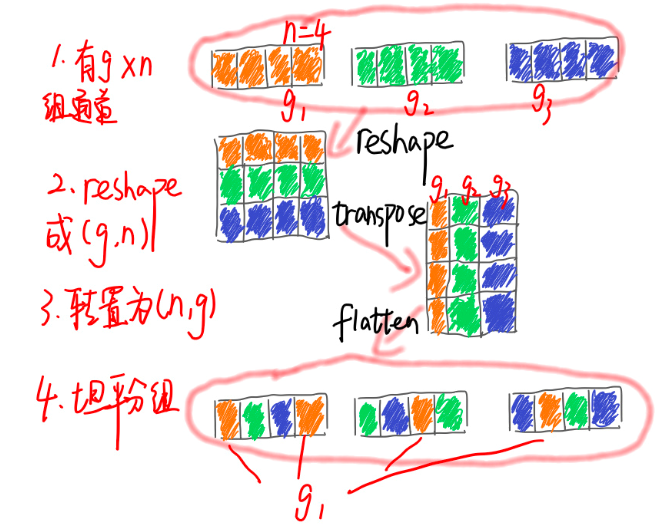 n=4
1. 有g×n
组通道
g1
g2
g3
reshape
2. reshape
成(g,n)
transpose
g1 g2 g3
3. 转置为(n,g)
flatten
4. 坦平分组
g1